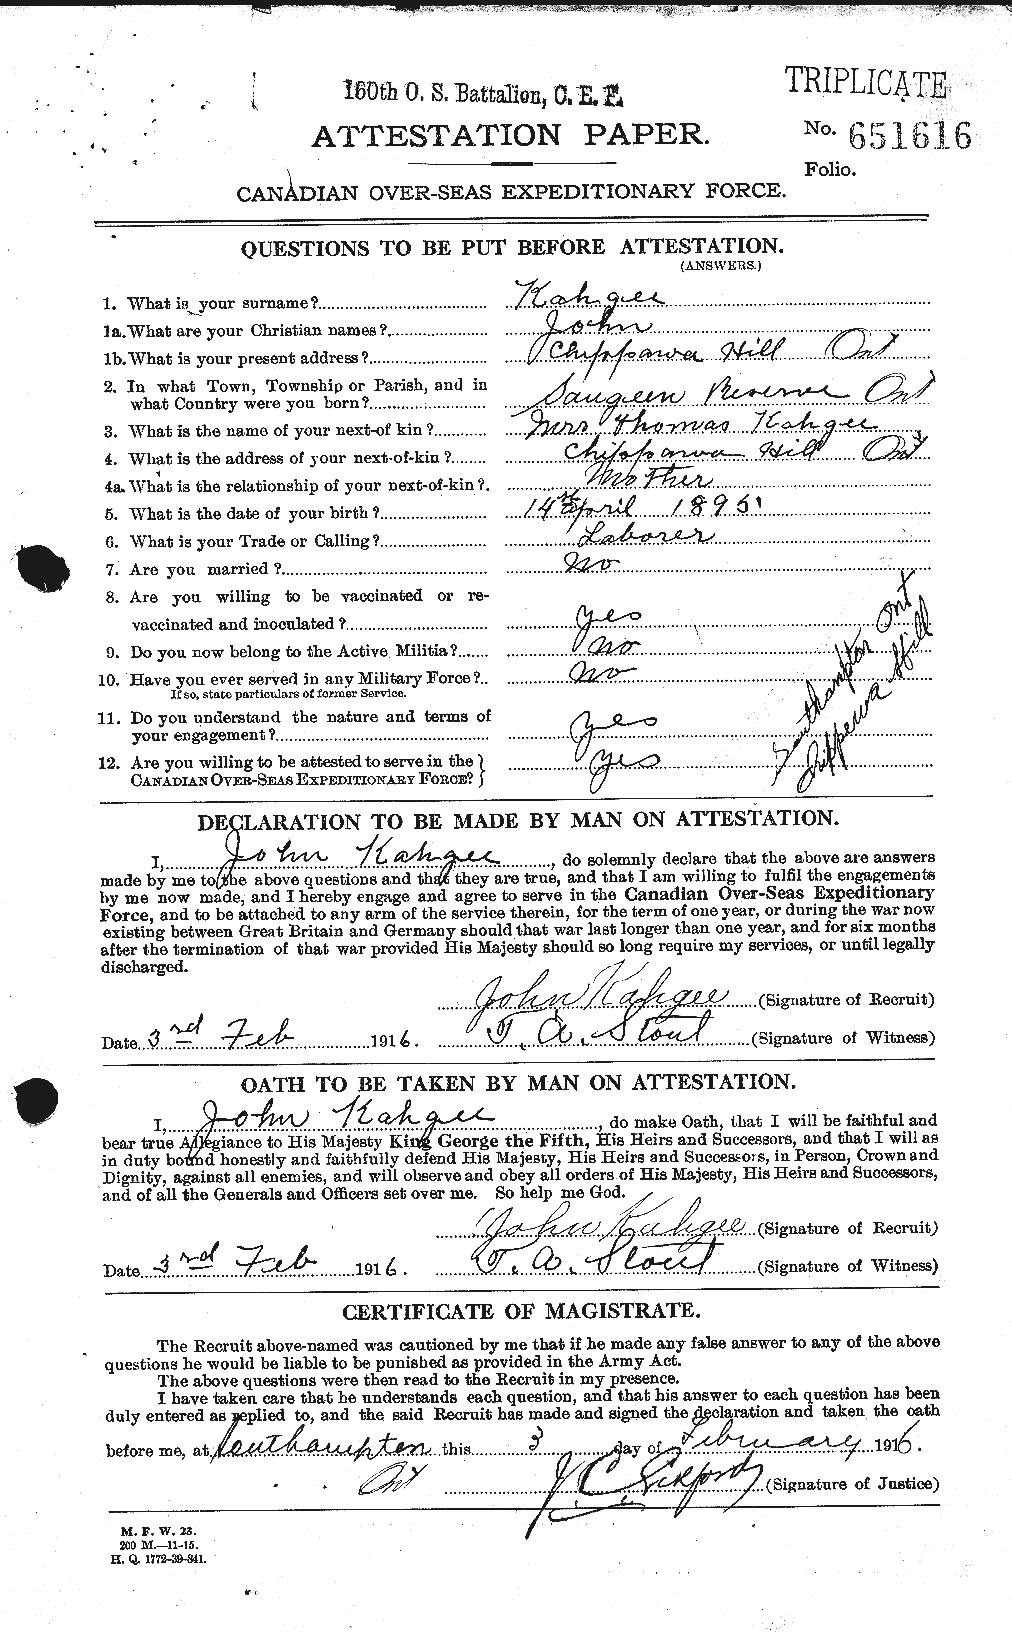 160th O. S. Battalion, C. E. F.
TRIPLICATE
ATTESTATION PAPER.
No. 651616
Folio.
CANADIAN OVER-SEAS EXPEDITIONARY FORCE.
QUESTIONS TO BE PUT BEFORE ATTESTATION.
(ANSWERS.)
1. What is your surname? Kahgee
1a. What are your Christian names? John
1b. What is your present address? Chippawa Hill Ont
2. In what Town, Township or Parish, and in
what Country were you born? Saugeen Reserve Ont
3. What is the name of your next-of kin? Mrs Thomas Kahgee
4. What is the address of your next-of-kin? Chippawa Hill Ont
4a. What is the relationship of your next-of-kin? Mother
5. What is the date of your birth? 14th April 1895
6. What is your Trade or Calling? Laborer
7. Are you married? No
8. Are you willing to be vaccinated or re-
vaccinated and inoculated? Yes
9. Do you now belong to the Active Militia? No
10. Have you ever served in any Military Force? No
If so, state particulars of former Service.
11. Do you understand the nature and terms of
your engagement? Yes
12. Are you willing to be attested to serve in the
CANADIAN OVER-SEAS EXPEDITIONARY FORCE? Yes
Southampton Ont
Chippewa Hill
DECLARATION TO BE MADE BY MAN ON ATTESTATION.
I, John Kahgee, do solemnly declare that the above are answers
made by me to the above questions and that they are true, and that I am willing to fulfil the engagements
by me now made, and I hereby engage and agree to serve in the Canadian Over-Seas Expeditionary
Force, and to be attached to any arm of the service therein, for the term of one year, or during the war now
existing between Great Britain and Germany should that war last longer than one year, and for six months
after the termination of that war provided His Majesty should so long require my services, or until legally
discharged.
John Kahgee (Signature of Recruit)
Date 3rd Feb 1916. T. A. Stout (Signature of Witness)
OATH TO BE TAKEN BY MAN ON ATTESTATION.
I, John Kahgee, do make Oath, that I will be faithful and
bear true Allegiance to His Majesty King George the Fifth, His Heirs and Successors, and that I will as
in duty bound honestly and faithfully defend His Majesty, His Heirs and Successors, in Person, Crown and
Dignity, against all enemies, and will observe and obey all orders of His Majesty, His Heirs and Successors,
and of all the Generals and Officers set over me. So help me God.
John Kahgee (Signature of Recruit)
Date 3rd Feb 1916. T. A. Stout (Signature of Witness)
CERTIFICATE OF MAGISTRATE.
The Recruit above-named was cautioned by me that if he made any false answer to any of the above
questions he would be liable to be punished as provided in the Army Act.
The above questions were then read to the Recruit in my presence.
I have taken care that he understands each question, and that his answer to each question has been
duly entered as replied to, and the said Recruit has made and signed the declaration and taken the oath
before me, at Southampton this 3 day of February 1916.
Ont J C (Signature of Justice)
M. F. W. 23.
200 M.—11-15.
H. Q. 1772-39-841.